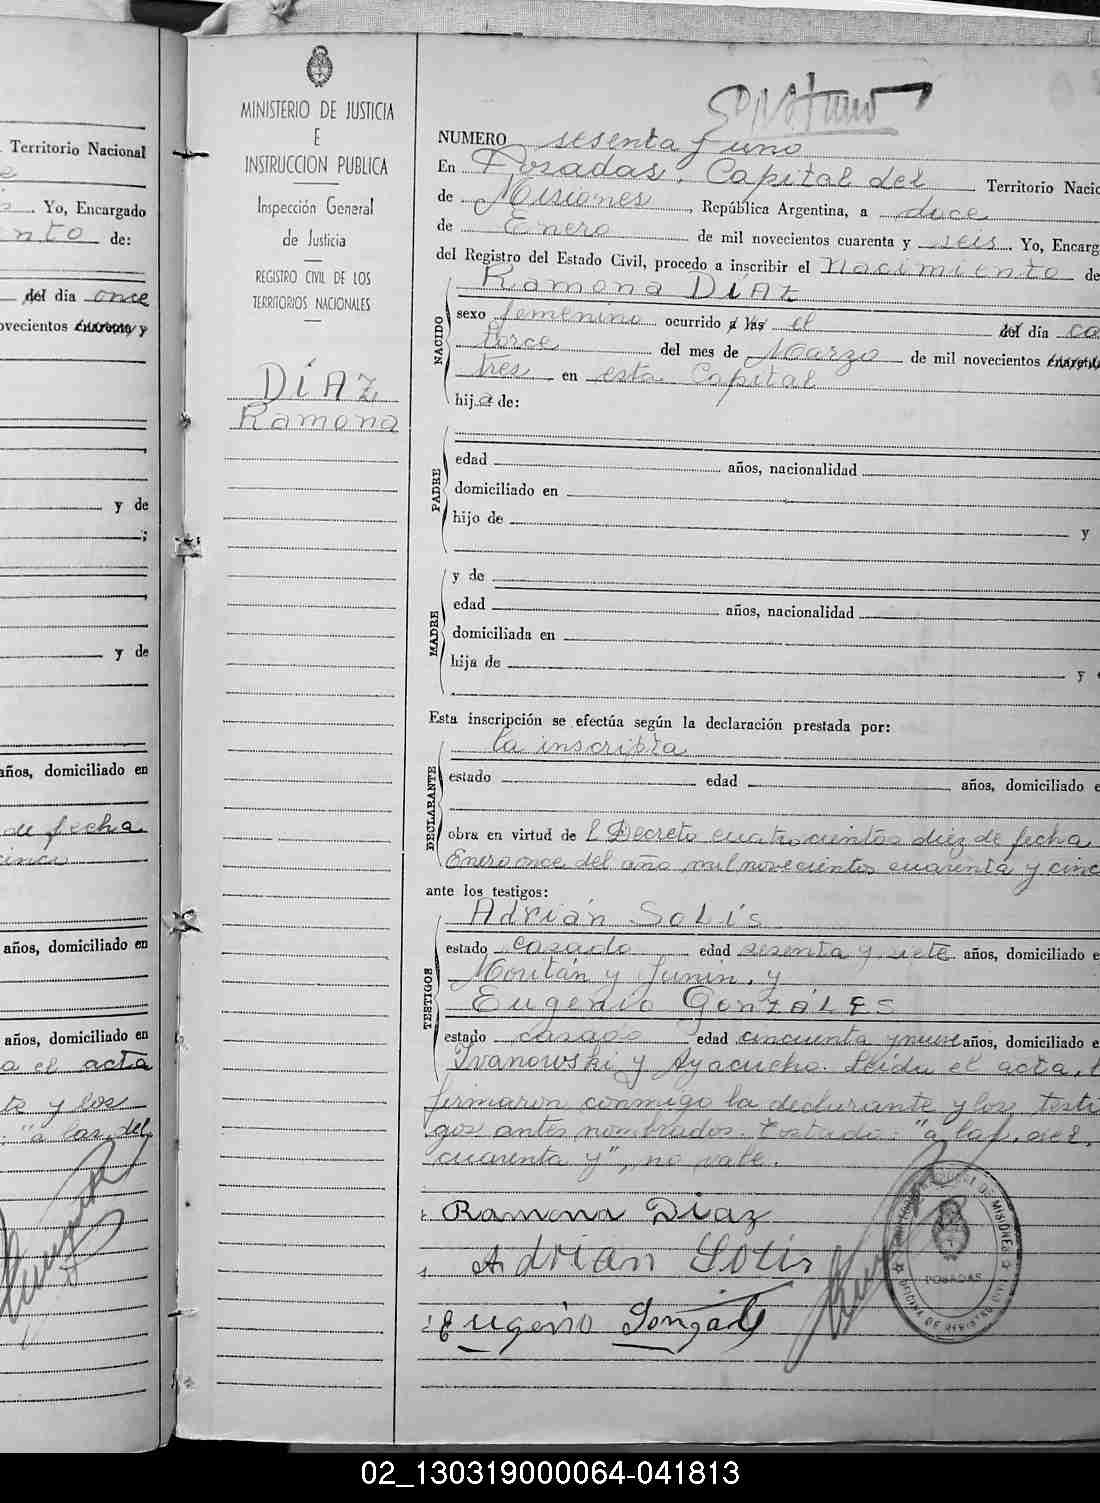 Territorio Nacional
Yo, Encargado
de:
del día once
ovecientos cuarenta y
y de
;
y de
años, domiciliado en
de fecha
cinco
años, domiciliado en
años, domiciliado en
a el acta
to y los
"a las, del
MINISTERIO DE JUSTICIA
E
INSTRUCCION PUBLICA
Inspección General
de Justicia
REGISTRO CIVIL DE LOS
TERRITORIOS NACIONALES
DÍAZ
Ramona
NUMERO sesenta y uno
En Posadas, Capital del Territorio Nacio
de Misiones, República Argentina, a doce
de Enero de mil novecientos cuarenta y seis. Yo, Encarg
del Registro del Estado Civil, procedo a inscribir el Nacimiento de
NACIDO
Ramona DÍAZ
sexo femenino ocurrido a las el del día ca
torce del mes de Marzo de mil novecientos cuarenta
tres en esta Capital
hija de:
PADRE
edad años, nacionalidad
domiciliado en
hijo de y
MADRE
y de
edad años, nacionalidad
domiciliada en
hija de y
Esta inscripción se efectúa según la declaración prestada por:
DECLARANTE
la inscripta
estado edad años, domiciliado e
obra en virtud de l Decreto cuatrocientos diez de fecha
Enero once del año mil novecientos cuarenta y cinc
ante los testigos:
TESTIGOS
Adrián SOLÍS
estado casado edad sesenta y siete años, domiciliado e
Moritán y Junín, y
Eugenio GONZÁLES
estado casado edad cincuenta y nueve años, domiciliado e
Ivanowski y Ayacucho. Leída el acta, l
firmaron conmigo la declarante y los testi
gos antes nombrados. Testado: "a las, del,
cuarenta y", no vale.
Ramona Diaz
Adrian Solis
Eugenio Gonzales
OFICINA DE REGISTRO CIVIL
POSADAS
02_130319000064-041813